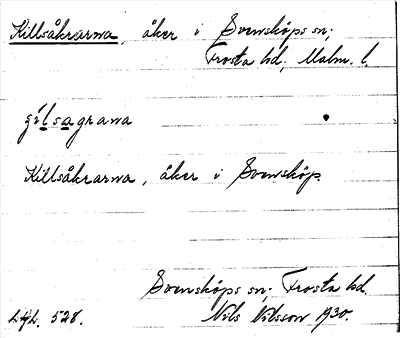 Killsåkrarna, åker i Svensköps sn;
Frosta hd, Malm. l.
gílsagrana
Killsåkrarna, åker i Svensköp.
Svensköps sn; Frosta hd.
528. Nils Nilsson 1930.